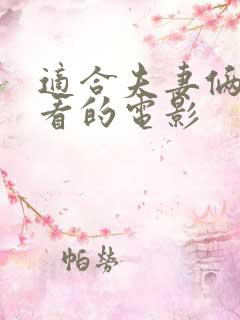 適合夫妻倆
看的電影
帕勞